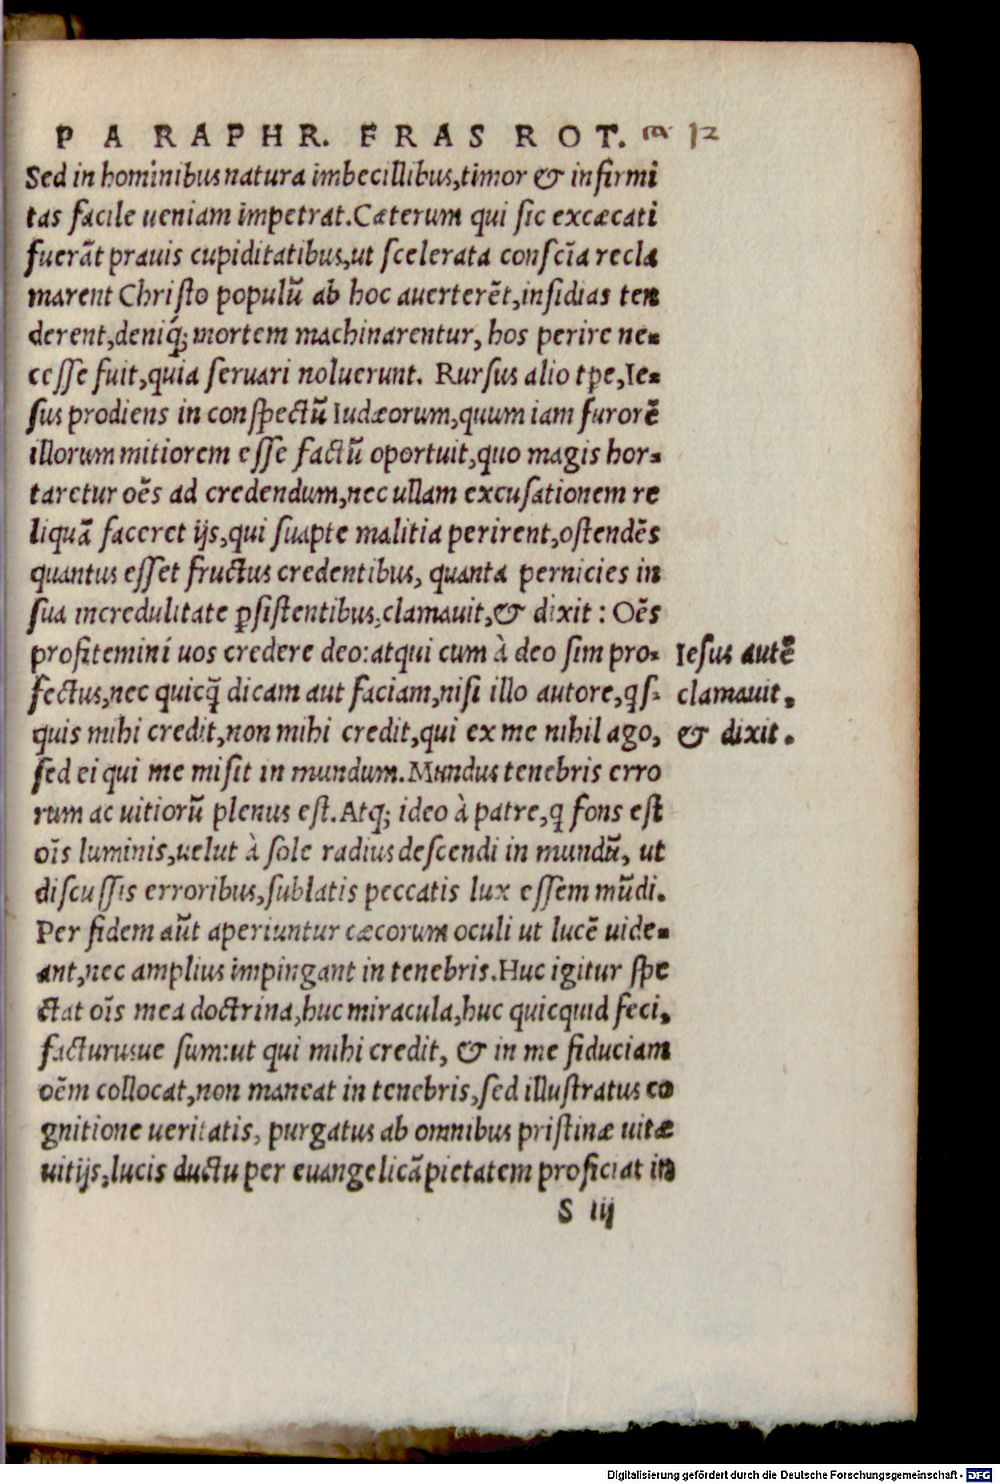 PARAPHR. ERAS ROT. ca 12
Sed in hominibus natura imbecillibus,timor & infirmi
tas facile ueniam impetrat.Cæterum qui sic excæcati
fuerãt prauis cupiditatibus,ut scelerata conscĩa recla
marent Christo populũ ab hoc auerterẽt,insidias ten
derent,deniq́; mortem machinarentur, hos perire ne-
cesse fuit,quia seruari noluerunt. Rursus alio tpe,Ie-
sus prodiens in conspectũ Iudæorum,quum iam furorẽ
illorum mitiorem esse factũ oportuit,quo magis hor-
taretur oẽs ad credendum,nec ullam excusationem re
liquã faceret ijs,qui suapte malitia perirent,ostendẽs
quantus esset fructus credentibus, quanta pernicies in
sua incredulitate ꝑsistentibus,clamauit,& dixit : Oẽs
profitemini uos credere deo:atqui cum à deo sim pro-
fectus,nec quicq̃ dicam aut faciam,nisi illo autore,q̃s-
quis mihi credit,non mihi credit,qui ex me nihil ago,
sed ei qui me misit in mundum.Mundus tenebris erro
rum ac uitiorũ plenus est.Atq; ideo à patre,q̃ fons est
oĩs luminis,uelut à sole radius descendi in mundũ, ut
discussis erroribus,sublatis peccatis lux essem mũdi.
Per fidem aũt aperiuntur cæcorum oculi ut lucẽ uide-
ant,nec amplius impingant in tenebris.Huc igitur spe
ctat oĩs mea doctrina,huc miracula,huc quicquid feci,
facturusue sum:ut qui mihi credit, & in me fiduciam
oẽm collocat,non maneat in tenebris,sed illustratus co
gnitione ueritatis, purgatus ab omnibus pristinæ uitæ
uitijs,lucis ductu per euangelicã pietatem proficiat in
S iij
Iesus autẽ
clamauit,
& dixit.
Digitalisierung gefördert durch die Deutsche Forschungsgemeinschaft - DFG